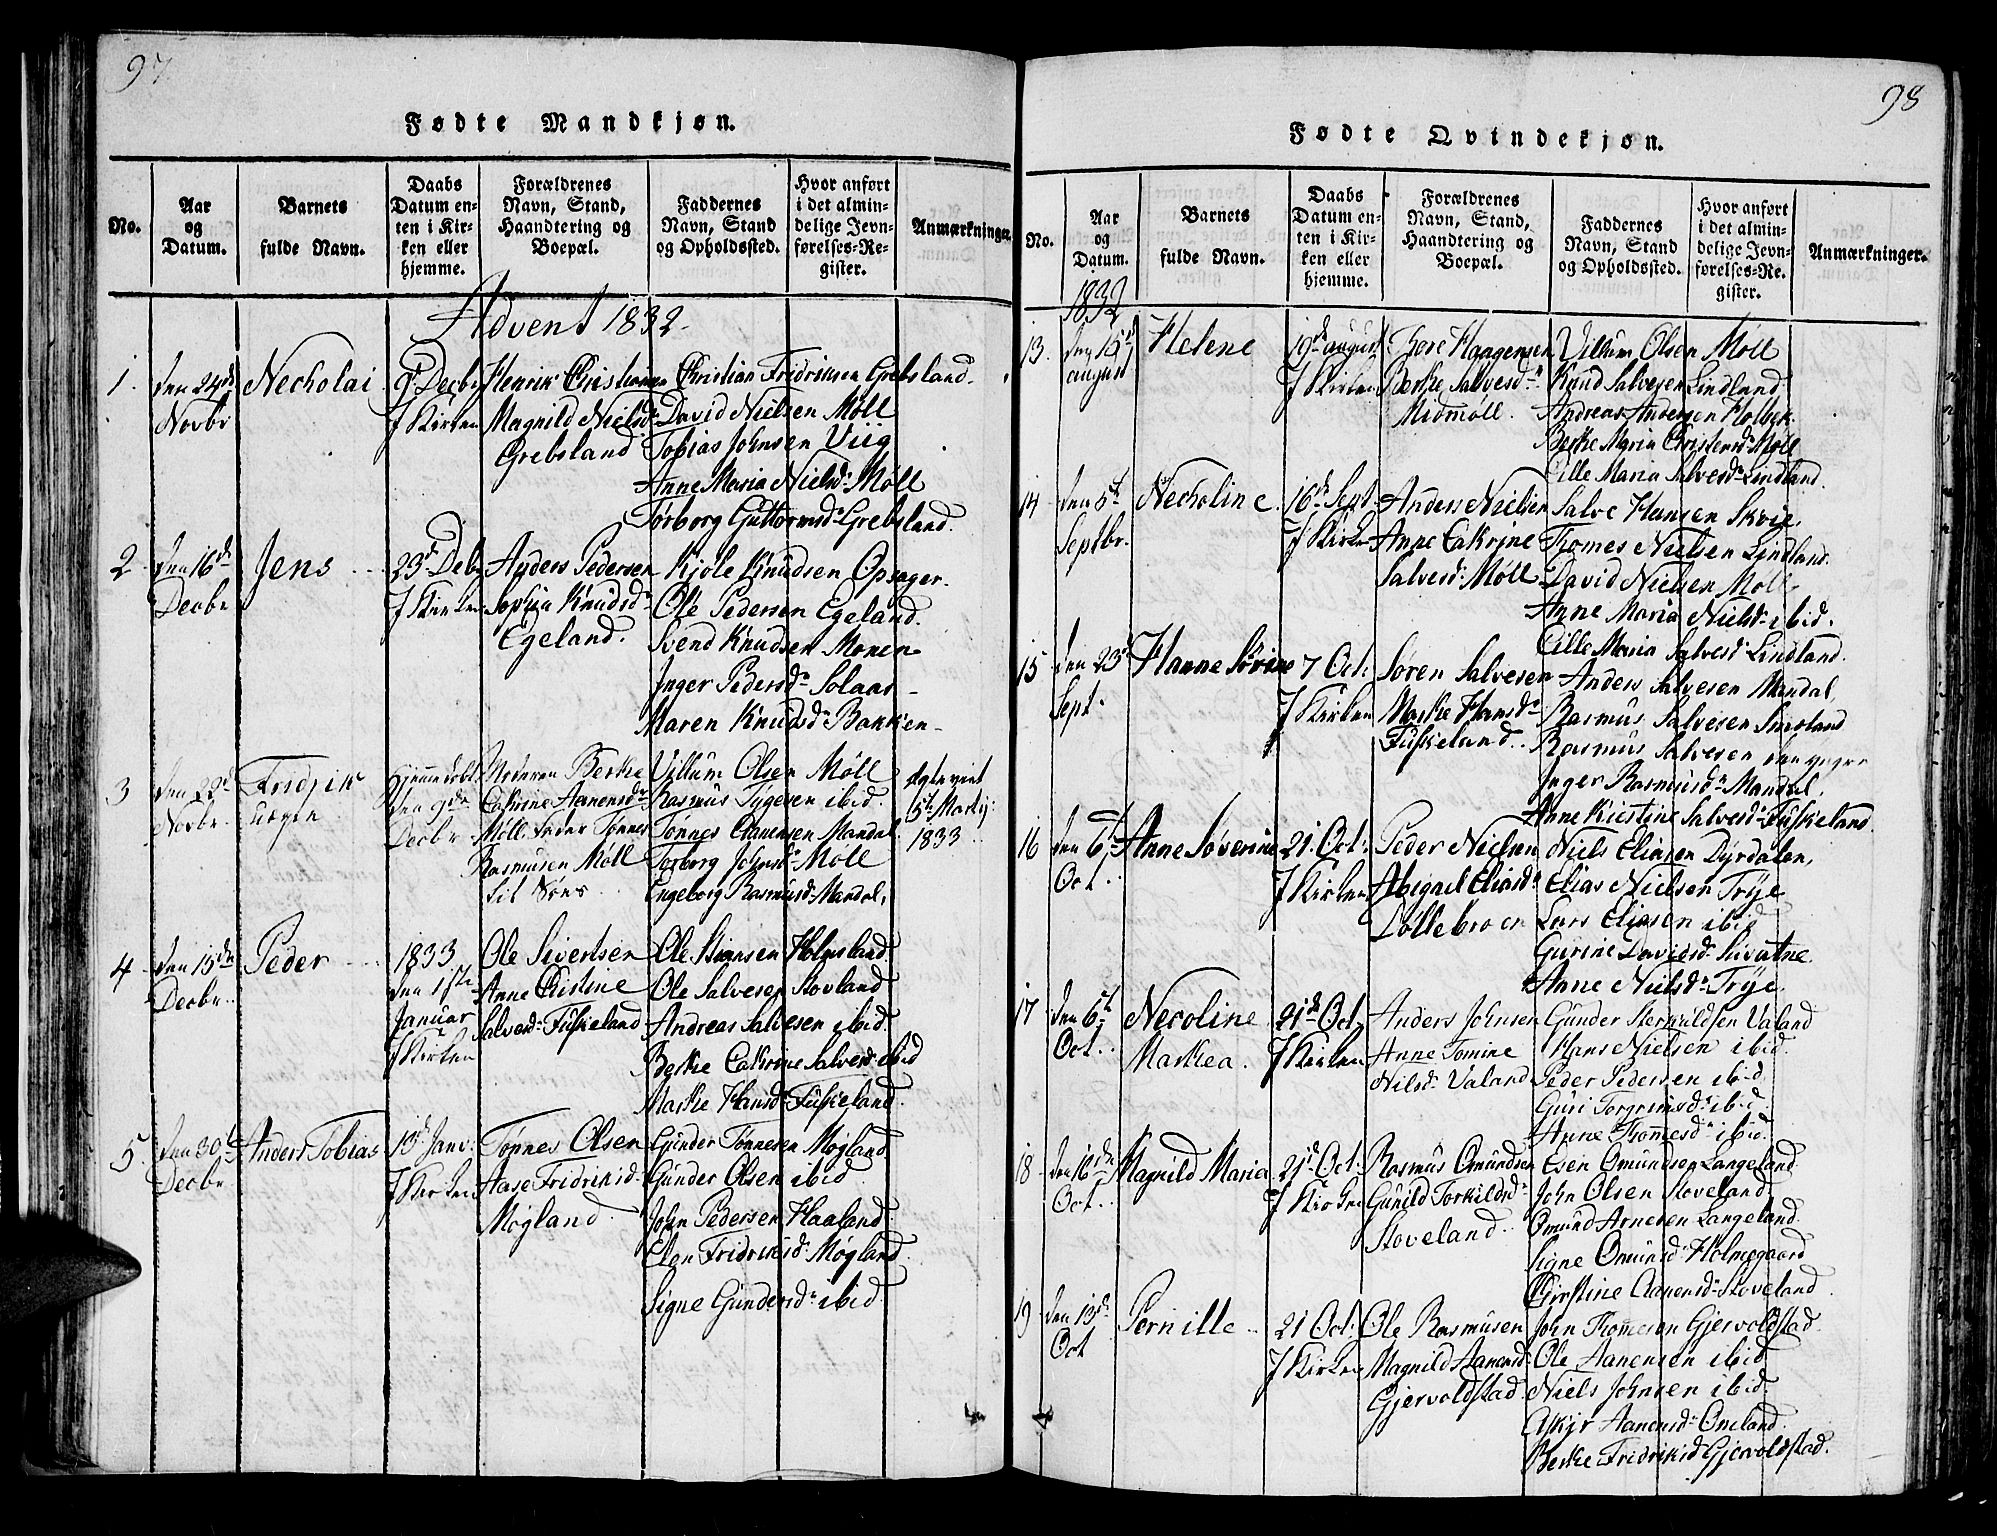 97
Fødte Mandkjøn.
No.
Aar og Datum.
Barnets fulde Navn.
Daabs Datum enten i Kirken eller hjemme.
Forældrenes Navn, Stand, Haandtering og Boepæl.
Faddernes Navn, Stand og Opholdssted.
Hvor anført i det almindelige Jevnførelses-Register.
Anmærkninger.
Advent 1832
1 den 24de Novbr
Necholai
9d Decbr
J Kirken
Henrik Christiansen
Magnild Nielsd:
Grebsland
Christian Fridriksen Grebsland
David Nielsen Møll
Tobias Johnsen Viig
Anne Maria Nielsd: Møll
Torborg Guttormsd: Grebsland
2 den 16de Decbr
Jens
23d Debr
J Kirken
Anders Pedersen
Sophia Knudsd:
Egeland.
Kjøle Knudsen Opsager
Ole Pedersen Egeland.
Svend Knudsen Monen
Inger Pedersd: Solaas
Maren Knudsd: Bakken
3 den 22d Novbr.
Fridrik
uægte
Hjemmedøbt
den 9de
Decbr
Moderen Berthe
Cathrine Aanensd:
Møll. Fader Tønnes
Rasmusen Møll
til Søns
Villum Olsen Møll
Rasmus Tygesen ibid.
Tønnes Clausensen Mandal
Torborg Johnsd: Møll
Engeborg Rasmusd: Mandal,
1833
4 den 15de Decbr.
Peder
1833
den 1ste
Januar
J Kirken
Ole Sivertsen
Anne Christine
Salvesd: Fuskeland
Ole Stiansen Holmsland
Ole Salvesen Stovland
Andreas Salvesen ibid.
Berthe Cathrine Salvesd ibid
Marthe Hansd: Fuskeland.
5. den 30t Decbr
Anders Tobias
13d Janv:
J Kirken
Tønnes Olsen
Aase Fridriksd:
Møgland
Gunder Tønnesen Møgland
Gunder Olsen ibid
John Pedersen Haaland
Elen Fridriksd: Møgland
Signe Gundersd: ibid
98
Fødte Qvindekjøn.
No.
Aar og Datum.
Barnets fulde Navn.
Daabs Datum enten i Kirken eller hjemme.
Forældrenes Navn, Stand, Haandtering og Boepæl.
Faddernes Navn, Stand og Opholdssted.
Hvor anført i det almindelige Jevnførelses-Register.
Anmærkninger.
1832
13. den 15d august
Helene
19de august
J Kirken
Tore Haagensen
Berthe Salvesd:
Midmøll.
Villum Olsen Møll
Knud Salvesen Lindland
Andreas Andersen Holbek
Berthe Maria Christensd: Møll
Cille Maria Salvesd: Lindland.
14 den 5t Septbr.
Necholine
16de Sept
J Kirken
Anders Nielsen
Anne Cathrine
Salvesd: Møll
Salve Hansen Skoie
Thomes Nielsen Lindland.
David Nielsen Møll
Anne Maria Nielsd: ibid.
Cille Maria Salvesd: Lindland.
15 den 23d Sept.
Hanne Sørine
7 Oct:
J Kirken
Søren Salvesen
Marthe Hansd:
Fuskeland.
Anders Salvesen Mandal
Rasmus Salvesen Smedland
Rasmus Salvesen den yngre
Inger Rasmusd: Mandal,
Anne Kirstine Salvesd: Fuskeland.
16 den 6t Oct.
Anne Søverine
21. Oct:
J Kirken
Peder Nielsen
Abigael Eliasd:
Lollebroen
Niels Eliasen Dyrdalen,
Elias Nielsen Trye
Lars Eliasen ibid
Gurine Davidsd: Sivatne
Anne Nielsd: Trye.
17 den 6t Oct.
Necoline
Marthea.
21d Oct,
J Kirken
Anders Johnsen
Anne Tomine
Nilsd: Valand
Gunder Sterkuldsen Valand
Hans Nielsen ibid.
Peder Pedersen ibid.
Guri Torgrimsd: ibid
Anne Thomesd: ibid.
18 den 16de Oct.
Magnild Maria
21d Oct:
J Kirken
Rasmus Omundsen
Gunild Torkildsd:
Stoveland
Esen Omundsen Langeland
John Olsen Stoveland
Omund Arnesen Langeland
Signe Omunsd: Holmegaard
Christine Aanensd: Stoveland
19 den 13de Oct
Pernille
21 Oct:
J Kirken
Ole Rasmusen
Magnild Aanensd:
Gjervoldstad
John Thomesen Gjervoldstad
Ole Aanensen ibid
Niels Johnsen ibid
Askjer Aanensd: Oneland
Berthe Fridriksd: Gjervoldstad.